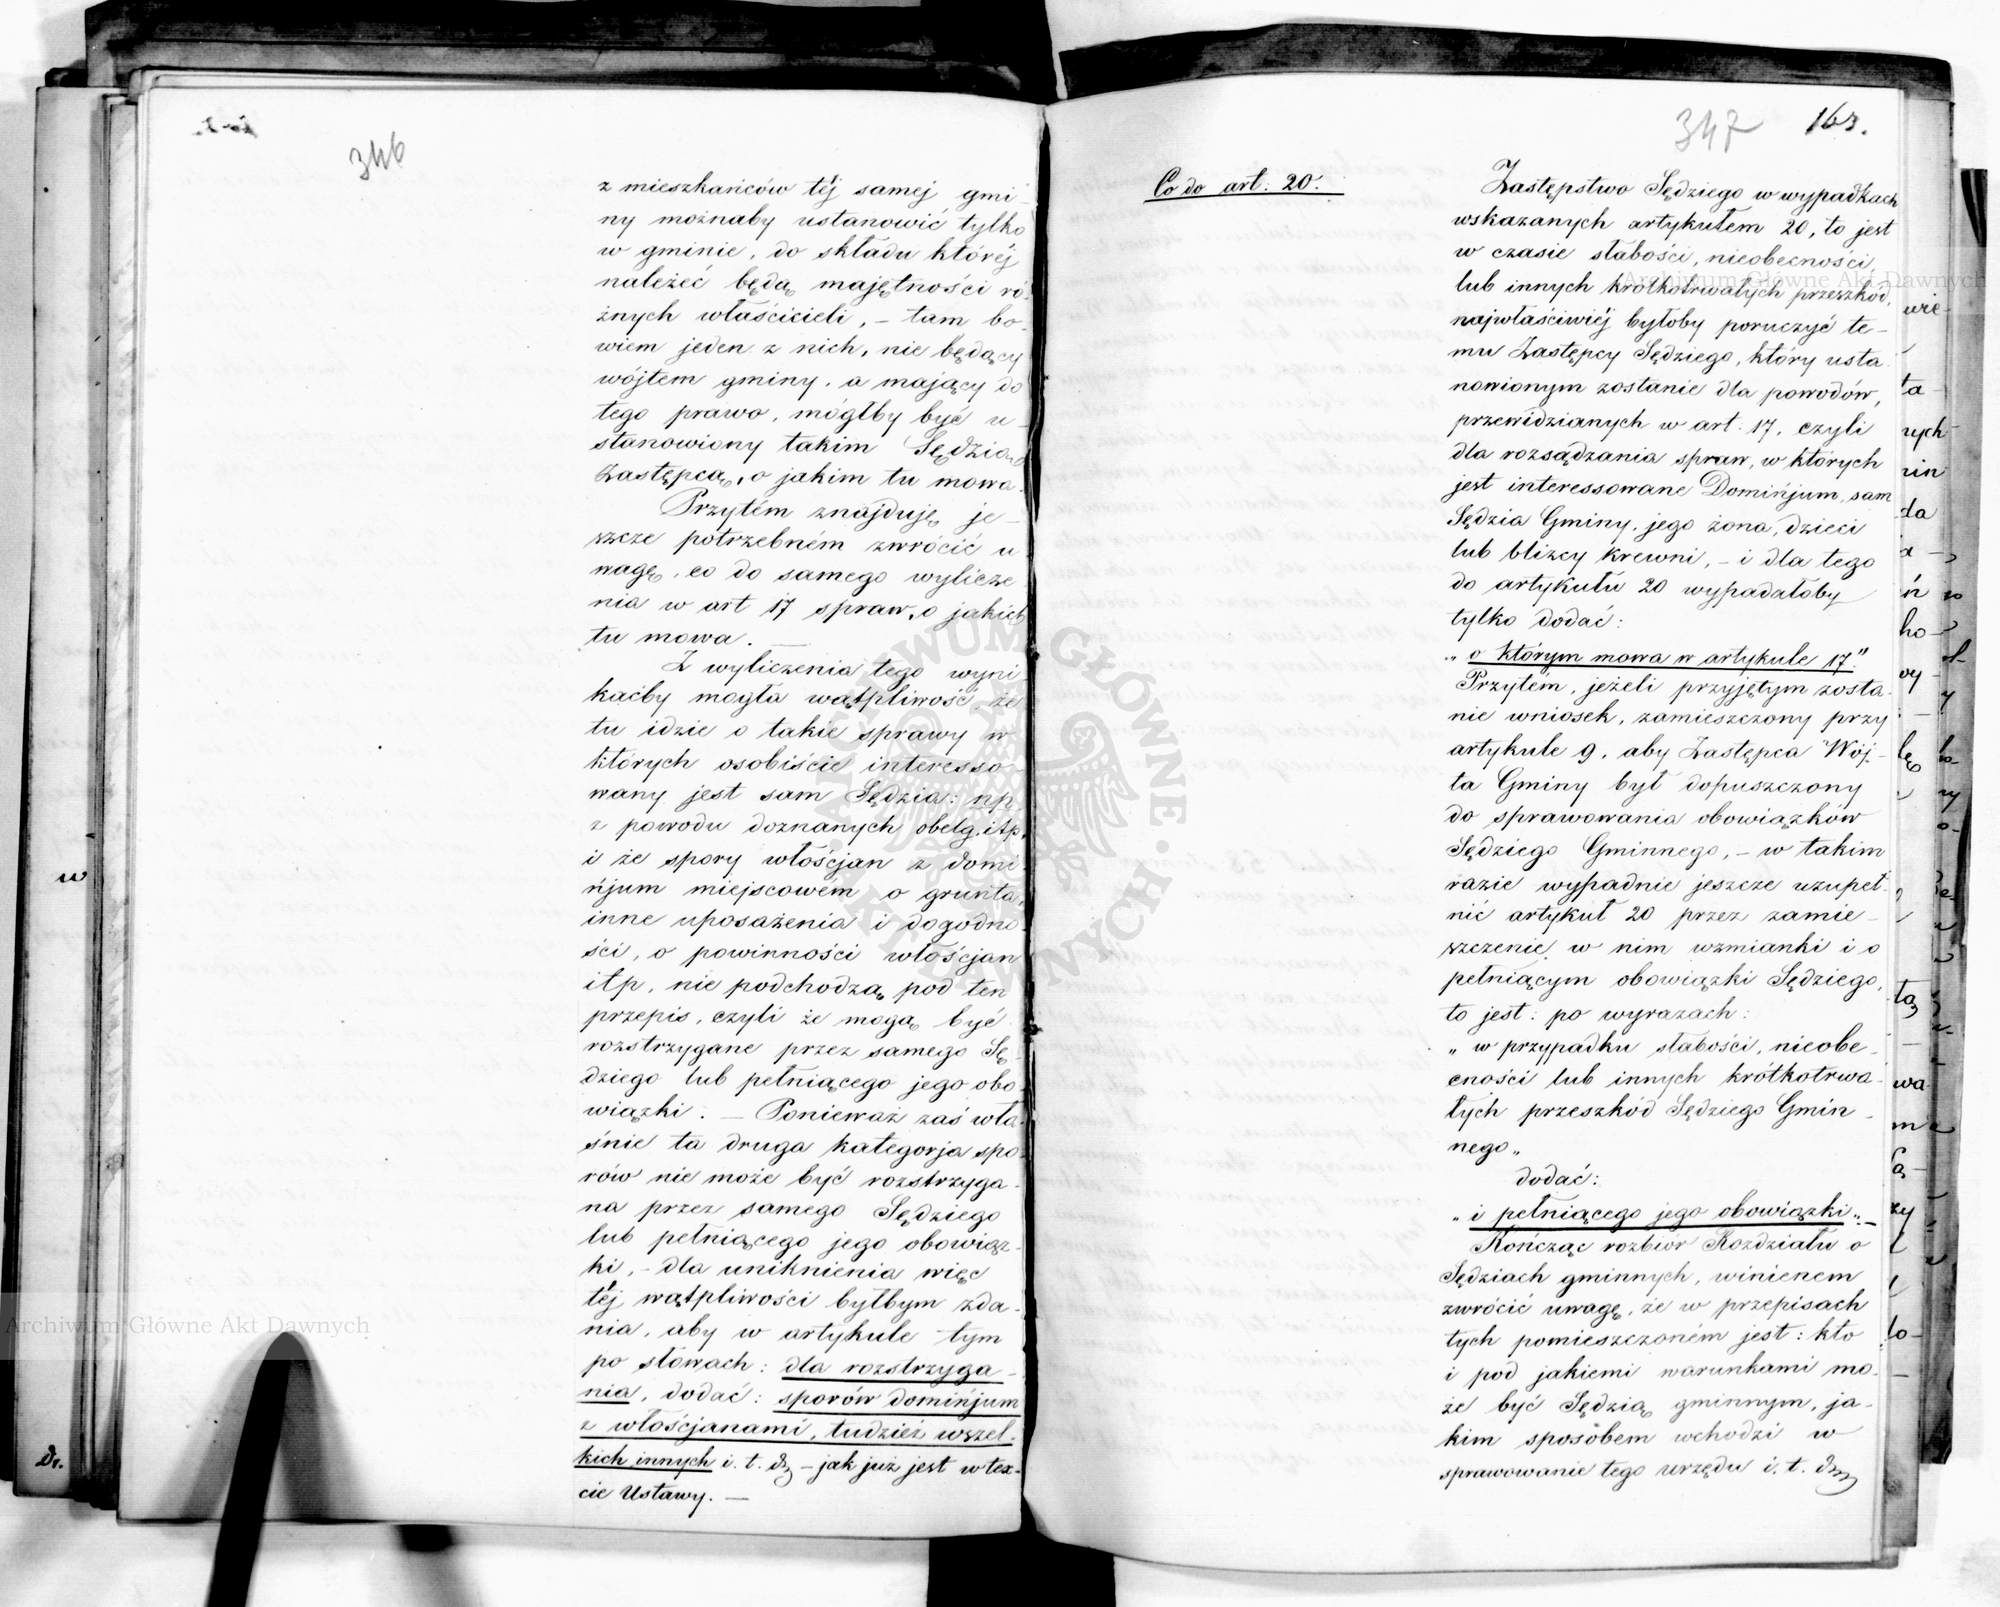 346
z mieszkańców téj samej gmi-
ny możnaby ustanowić tylko
w gminie, do składu któréj
należeć będą majętności ró-
żnych właścicieli, – tam bo-
wiem jeden z nich, nie będący
wójtem gminy, a mający do
tego prawo, mógłby być u-
stanowiony takim Sędzią
Zastępcą, o jakim tu mowa.
Przytém znajduję je-
szcze potrzebném zwrócić u
wagę, co do samego wylicze
nia w art 17 spraw, o jakich
tu mowa. –
Z wyliczenia tego wyni
kaćby mogła wątpliwość, że
tu idzie o takie sprawy w
których osobiście interesso-
wany jest sam Sędzia: np
z powodu doznanych obelg, itp,
i że spory włościan z domi-
njum miejscowém o grunta,
inne uposażenia i dogodno-
ści, o powinności włościan
itp, nie podchodzą pod ten
przepis, czyli że mogą być
rozstrzygane przez samego Sę-
dziego lub pełniącego jego obo-
wiązki. – Ponieważ zaś wła-
śnie ta druga kategorja spo-
rów nie może być rozstrzyga-
na przez samego Sędziego
lub pełniącego jego obowiąz-
ki, – dla uniknienia więc
téj wątpliwości byłbym zda-
nia, aby w artykule tym
po słowach: dla rozstrzyga-
nia, dodać: sporów dominjum
z włościanami, tudzież wszel-
kich innych i. t. d – jak już jest w tex-
cie Ustawy. –
347 163.
Co do art. 20.
Zastępstwo Sędziego w wypadkach
wskazanych artykułem 20, to jest
w czasie słabości, nieobecności
lub innych krótkotrwałych przeszkód,
najwłaściwiéj byłoby poruczyć te-
mu Zastępcy Sędziego, który usta
nowionym zostanie dla powodów,
przewidzianych w art. 17, czyli
dla rozsądzania spraw, w których
jest interessowane Dominjum, sam
Sędzia Gminy, jego żona, dzieci
lub blizcy krewni, – i dla tego
do artykułu 20 wypadałoby
tylko dodać:
„ o którym mowa w artykule 17"
Przytém, jeżeli przyjętym zosta-
nie wniosek, zamieszczony przy
artykule 9, aby Zastępca Wój-
ta Gminy był dopuszczony
do sprawowania obowiązków
Sędziego Gminnego, – w takim
razie wypadnie jeszcze uzupeł-
nić artykuł 20 przez zamie-
szczenie w nim wzmianki i o
pełniącym obowiązki Sędziego,
to jest: po wyrazach:
„ w przypadku słabości, nieobe-
cności lub innych krótkotrwa-
łych przeszkód Sędziego Gmin-
nego„
dodać:
„ i pełniącego jego obowiązki„ –
Kończąc rozbiór Rozdziału o
Sędziach gminnych, winienem
zwrócić uwagę, że w przepisach
tych pomieszczoném jest: kto
i pod jakiemi warunkami mo-
że być Sędzią gminnym, ja-
kim sposobem wchodzi w
sprawowanie tego urzędu i. t. d
Archiwum Główne Akt Dawnych
Archiwum Główne Akt Dawnych
ARCHIWUM GŁÓWNE AKT DAWNYCH